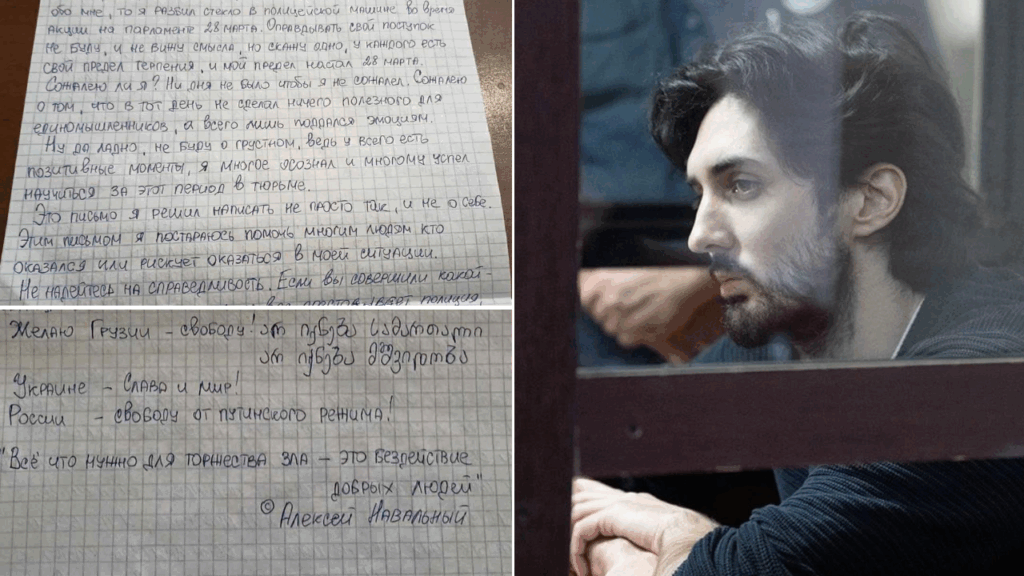 обо мне, то я разбил стекло в полицейской машине во время
акции на парламенте 28 марта. Оправдывать свой поступок
не буду, и не вижу смысла, но скажу одно, у каждого есть
свой предел терпения, и мой предел настал 28 марта.
Сожалею ли я? Ни дня не было чтобы я не сожалел. Сожалею
о том, что в тот день не сделал ничего полезного для
единомышленников, а всего лишь поддался эмоциям.
Ну да ладно, не буду о грустном, ведь у всего есть
позитивные моменты, я многое осознал и многому успел
научиться за этот период в тюрьме.
Это письмо я решил написать не просто так, и не о себе.
Этим письмом я постараюсь помочь многим людям кто
оказался или рискует оказаться в моей ситуации.
Не надейтесь на справедливость. Если вы совершили какой-
полиция,
Желаю Грузии - свободу! არ იქნება სამართალი
არ იქნება მშვიდობა
Украине - Слава и мир!
России - свободу от путинского режима!
"Всё что нужно для торжества зла - это бездействие
добрых людей"
© Алексей Навальный